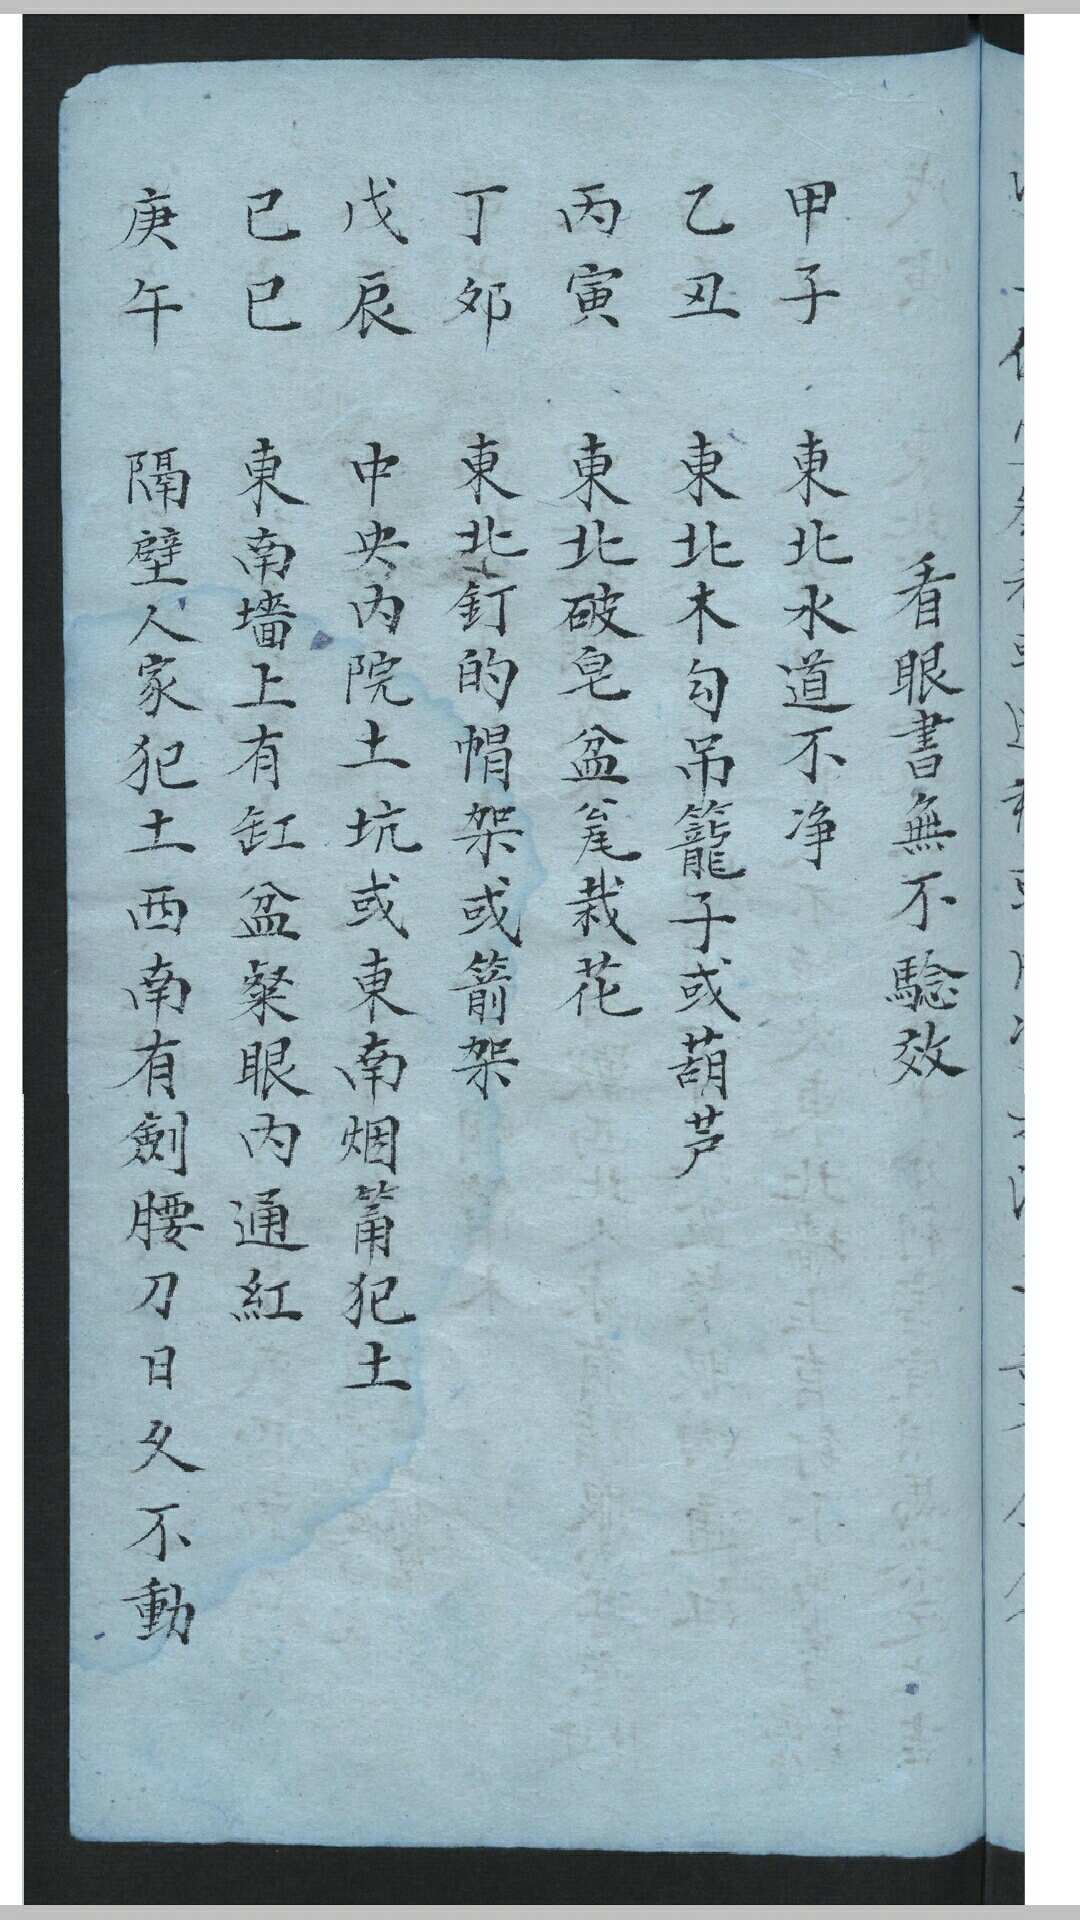 看眼書無不驗效
甲子 東北水道不净
乙丑 東北木勾吊籠子或葫芦
丙寅 東北破皂盆瓮栽花
丁卯 東北釘的帽架或箭架
戊辰 中央内院土坑或東南烟筩犯土
己巳 東南墻上有缸盆粲眼内通紅
庚午 隔壁人家犯土西南有劍腰刀日久不動